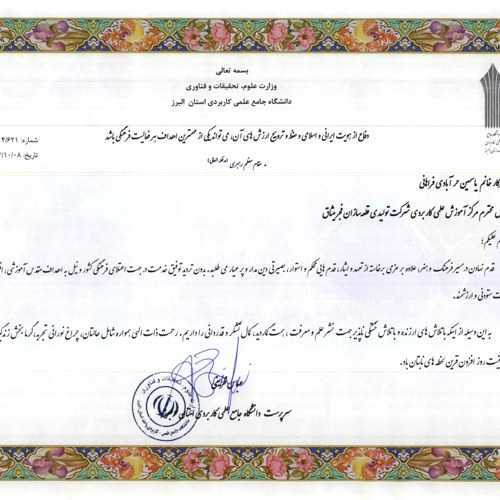 بسمه تعالی
وزارت علوم، تحقیقات و فناوری
دانشگاه جامع علمی کاربردی استان البرز
شماره: ۴/۶۲۱
تاریخ: /۱۰/۰۸
دفاع از هویت ایرانی و اسلامی و حفظ و ترویج ارزش های آن، می تواند یکی از مهمترین اهداف هر فعالیت فرهنگی باشد
مقام معظم رهبری
کار خانم یاسمین حر آبادی فراهانی
محترم مرکز آموزش علمی کاربردی شرکت تولیدی قطعه سازان فجر یثاق
علیکم؛
قدم نهادن در مسیر فرهنگ و هنر، علاوه بر عزمی برخاسته از تعهد و ایثار، قدم هایی محکم و استوار، بصیرتی دین مدار و پر عیار می طلبد. بدون تردید توفیق خدمت در جهت اعتلای فرهنگی کشور و نیل به اهداف مقدس آموزشی،
ستودنی و ارزشمند.
به این وسیله از اینکه با تلاش های ارزنده و با تلاش خستگی ناپذیر جهت نشر علم و معرفت، همت گماردید، کمال تشکر و قدردانی را داریم. رحمت ذات الهی همواره شامل حالتان، چراغ نورانی تجربه، گرما بخش
روز افزون ترین لحظه های تابتان باد.
عباس
سرپرست دانشگاه جامع علمی کاربردی استان البرز